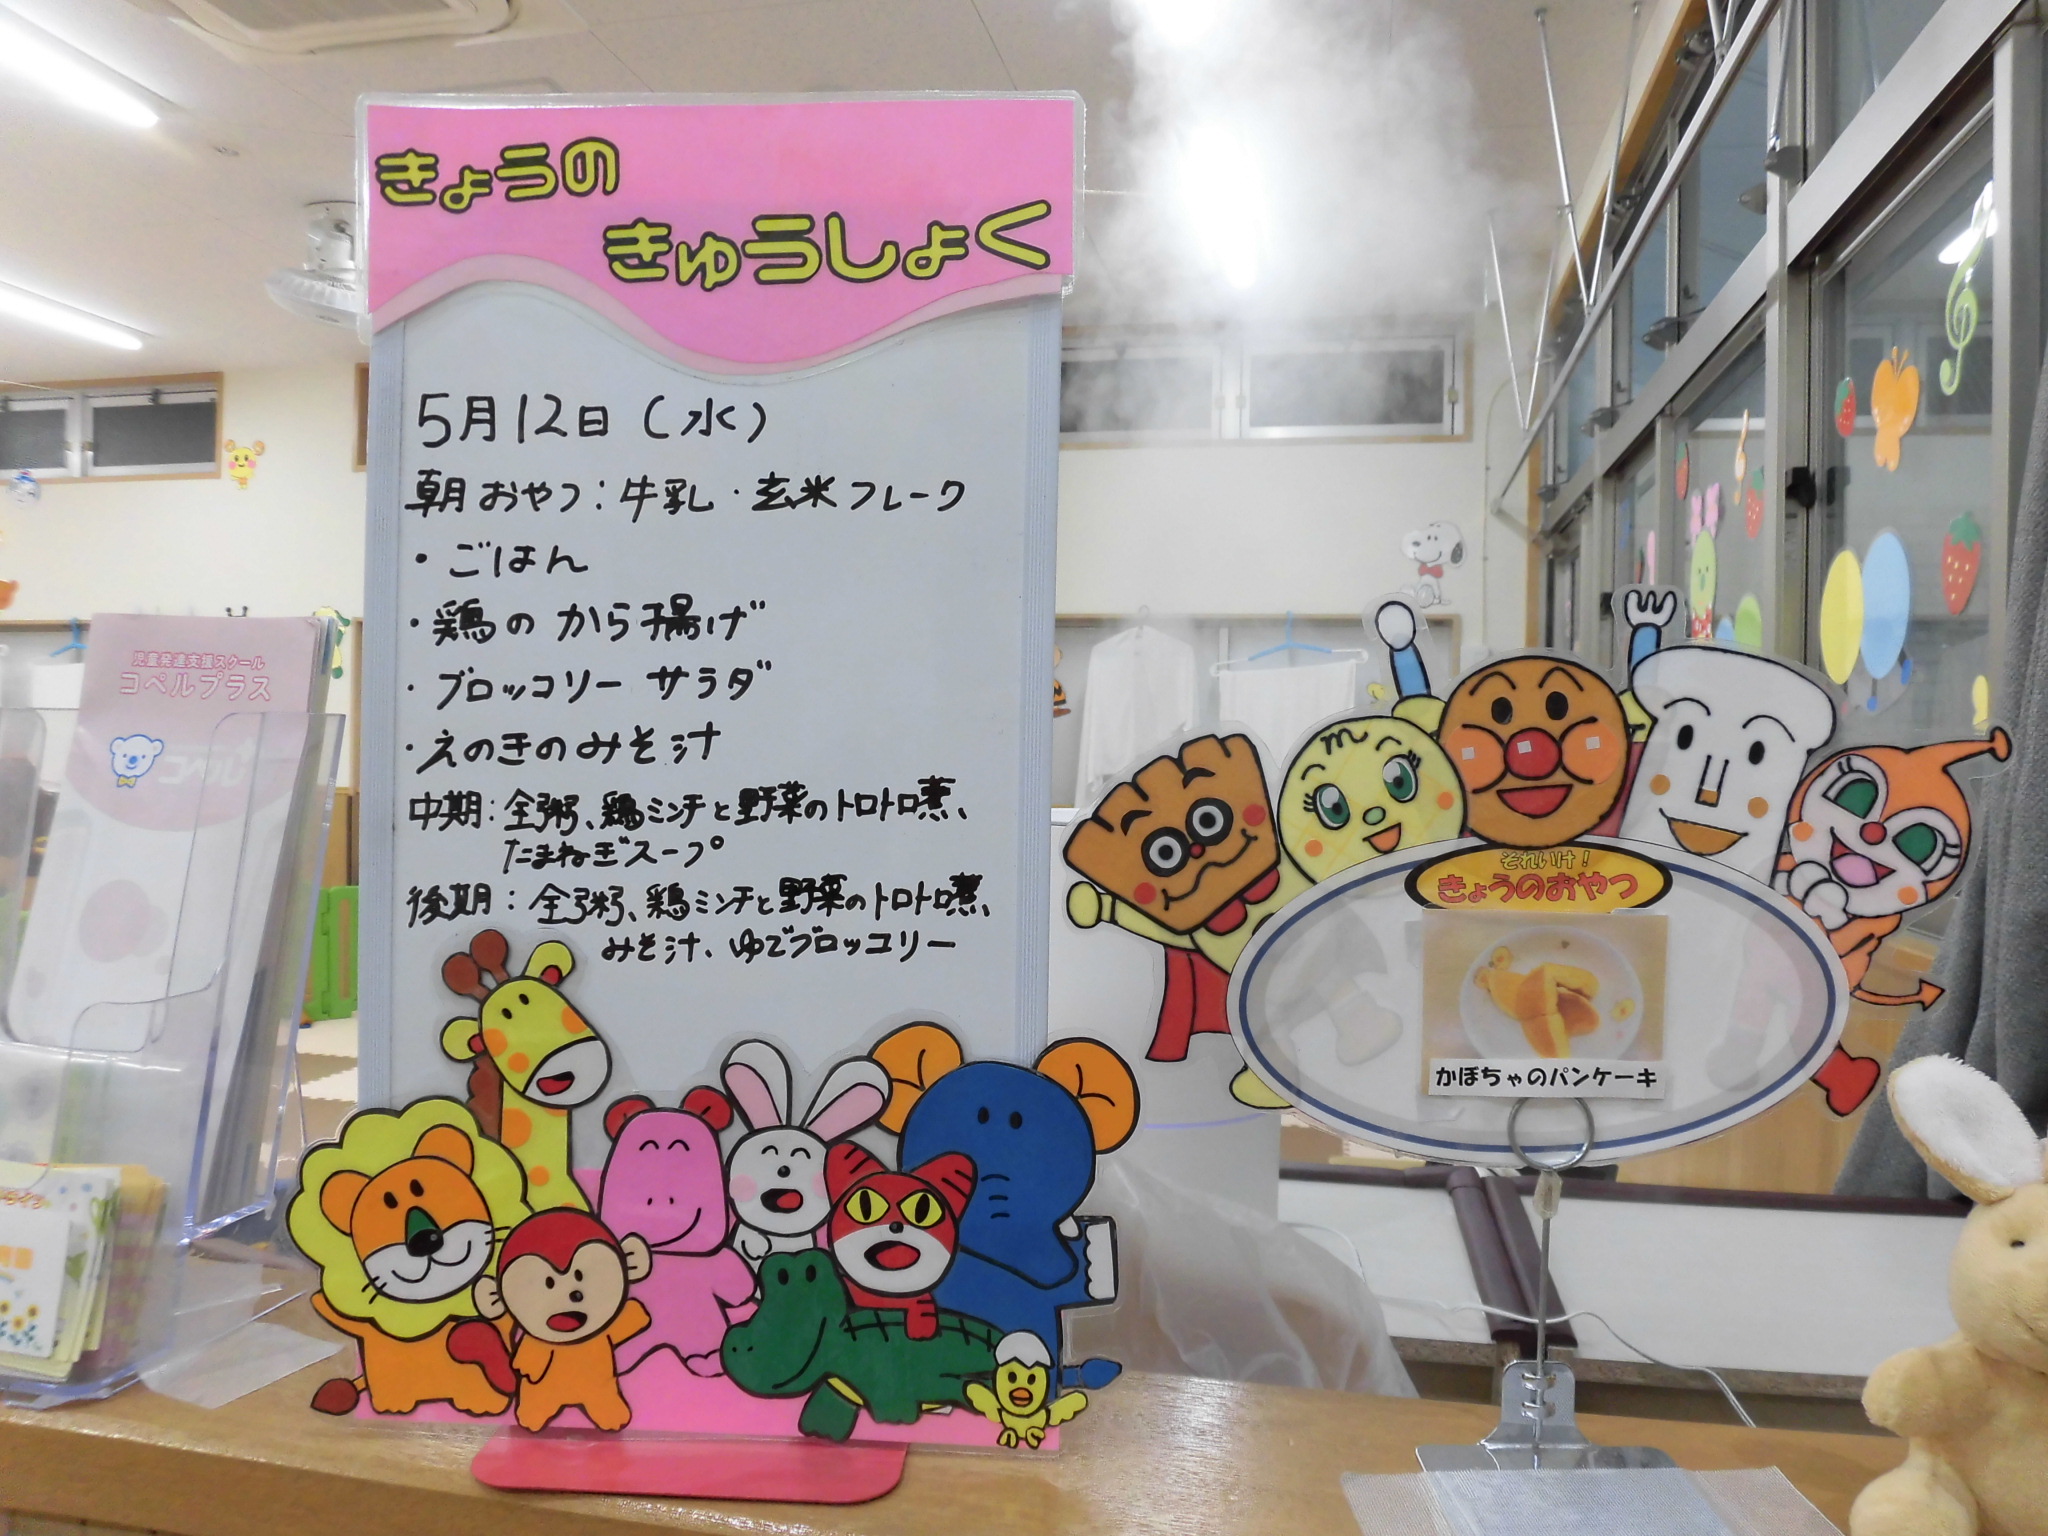 きょうの
きゅうしょく
5月12日(水)
朝おやつ:牛乳・玄米フレーク
・ごはん
・鶏のから揚げ
・ブロッコリーサラダ
・えのきのみそ汁
中期:全粥、鶏ミンチと野菜のトロトロ煮、
たまねぎスープ
後期:全粥、鶏ミンチと野菜のトロトロ煮、
みそ汁、ゆでブロッコリー
児童発達支援スクール
コペルプラス
コペル+
それいけ!
きょうのおやつ
かぼちゃのパンケーキ